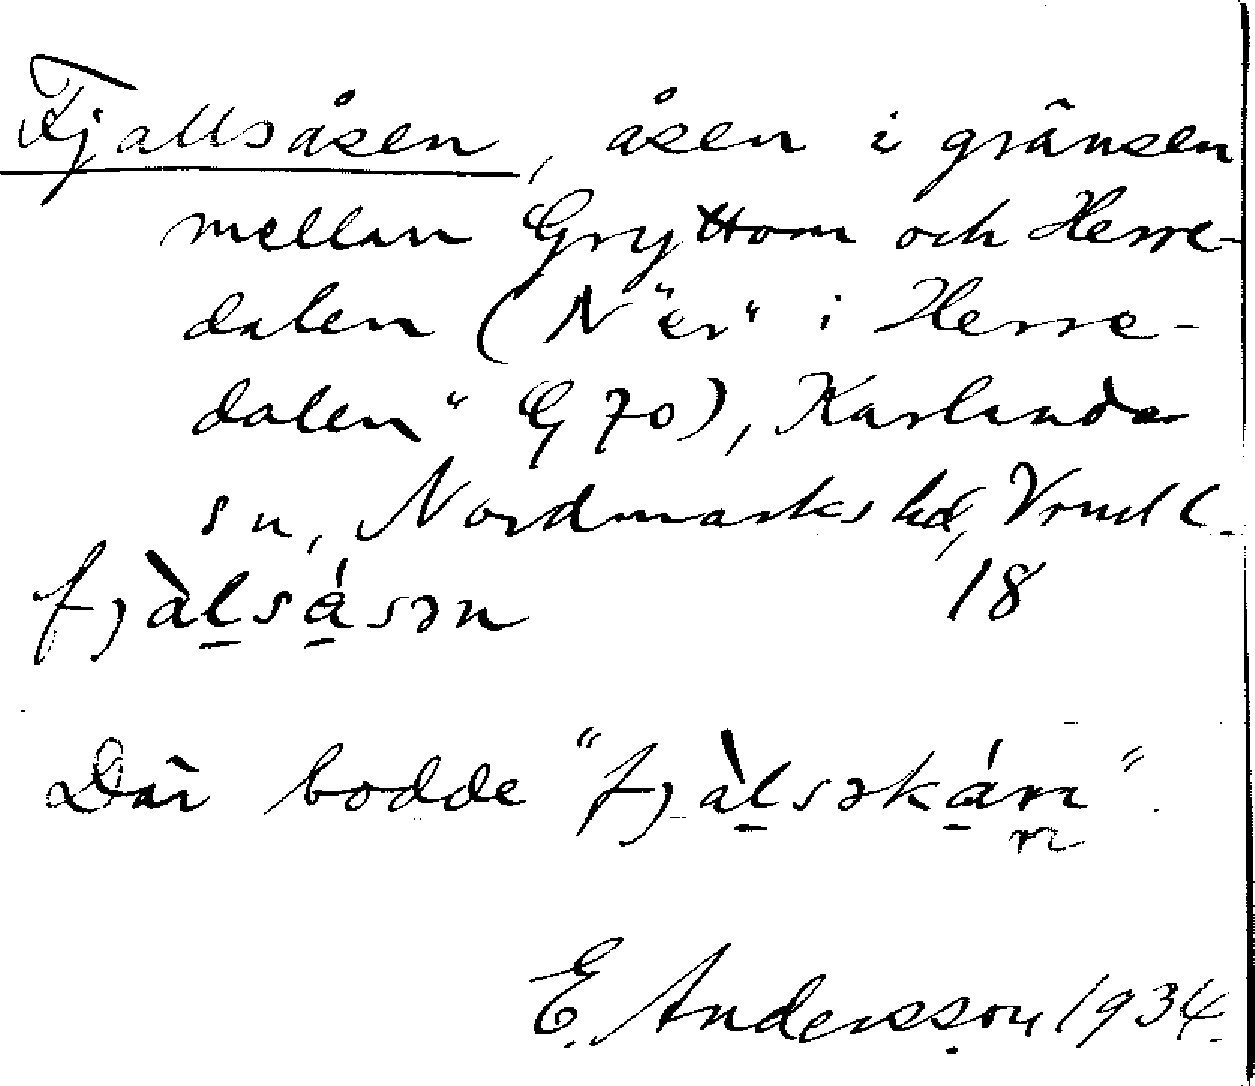 Fjallsåsen, åsen i gränsen
mellan Gryttom och Herre-
dalen (N "er" i Herre-
dalen" G 70), Karlanda
sn, Nordmarks hd, Vrmdl.
fjàl̲sá̲sən 18
Där bodde "fjàl̲səká̲rn".
E. Andersson 1934.